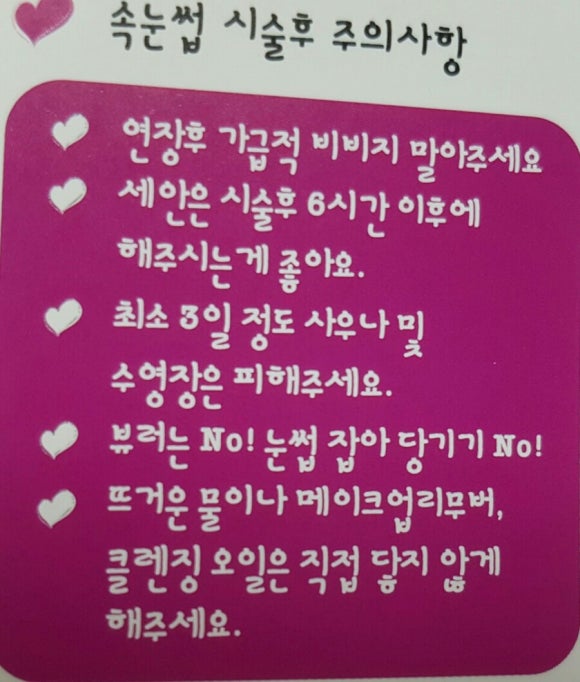 속눈썹 시술후 주의사항
연장후 가급적 비비지 말아주세요
세안은 시술후 6시간 이후에
해주시는게 좋아요.
최소 3일 정도 사우나 및
수영장은 피해주세요.
뷰러는 No! 눈썹 잡아 당기기 No!
뜨거운 물이나 메이크업리무버,
클렌징 오일은 직접 닿지 않게
해주세요.